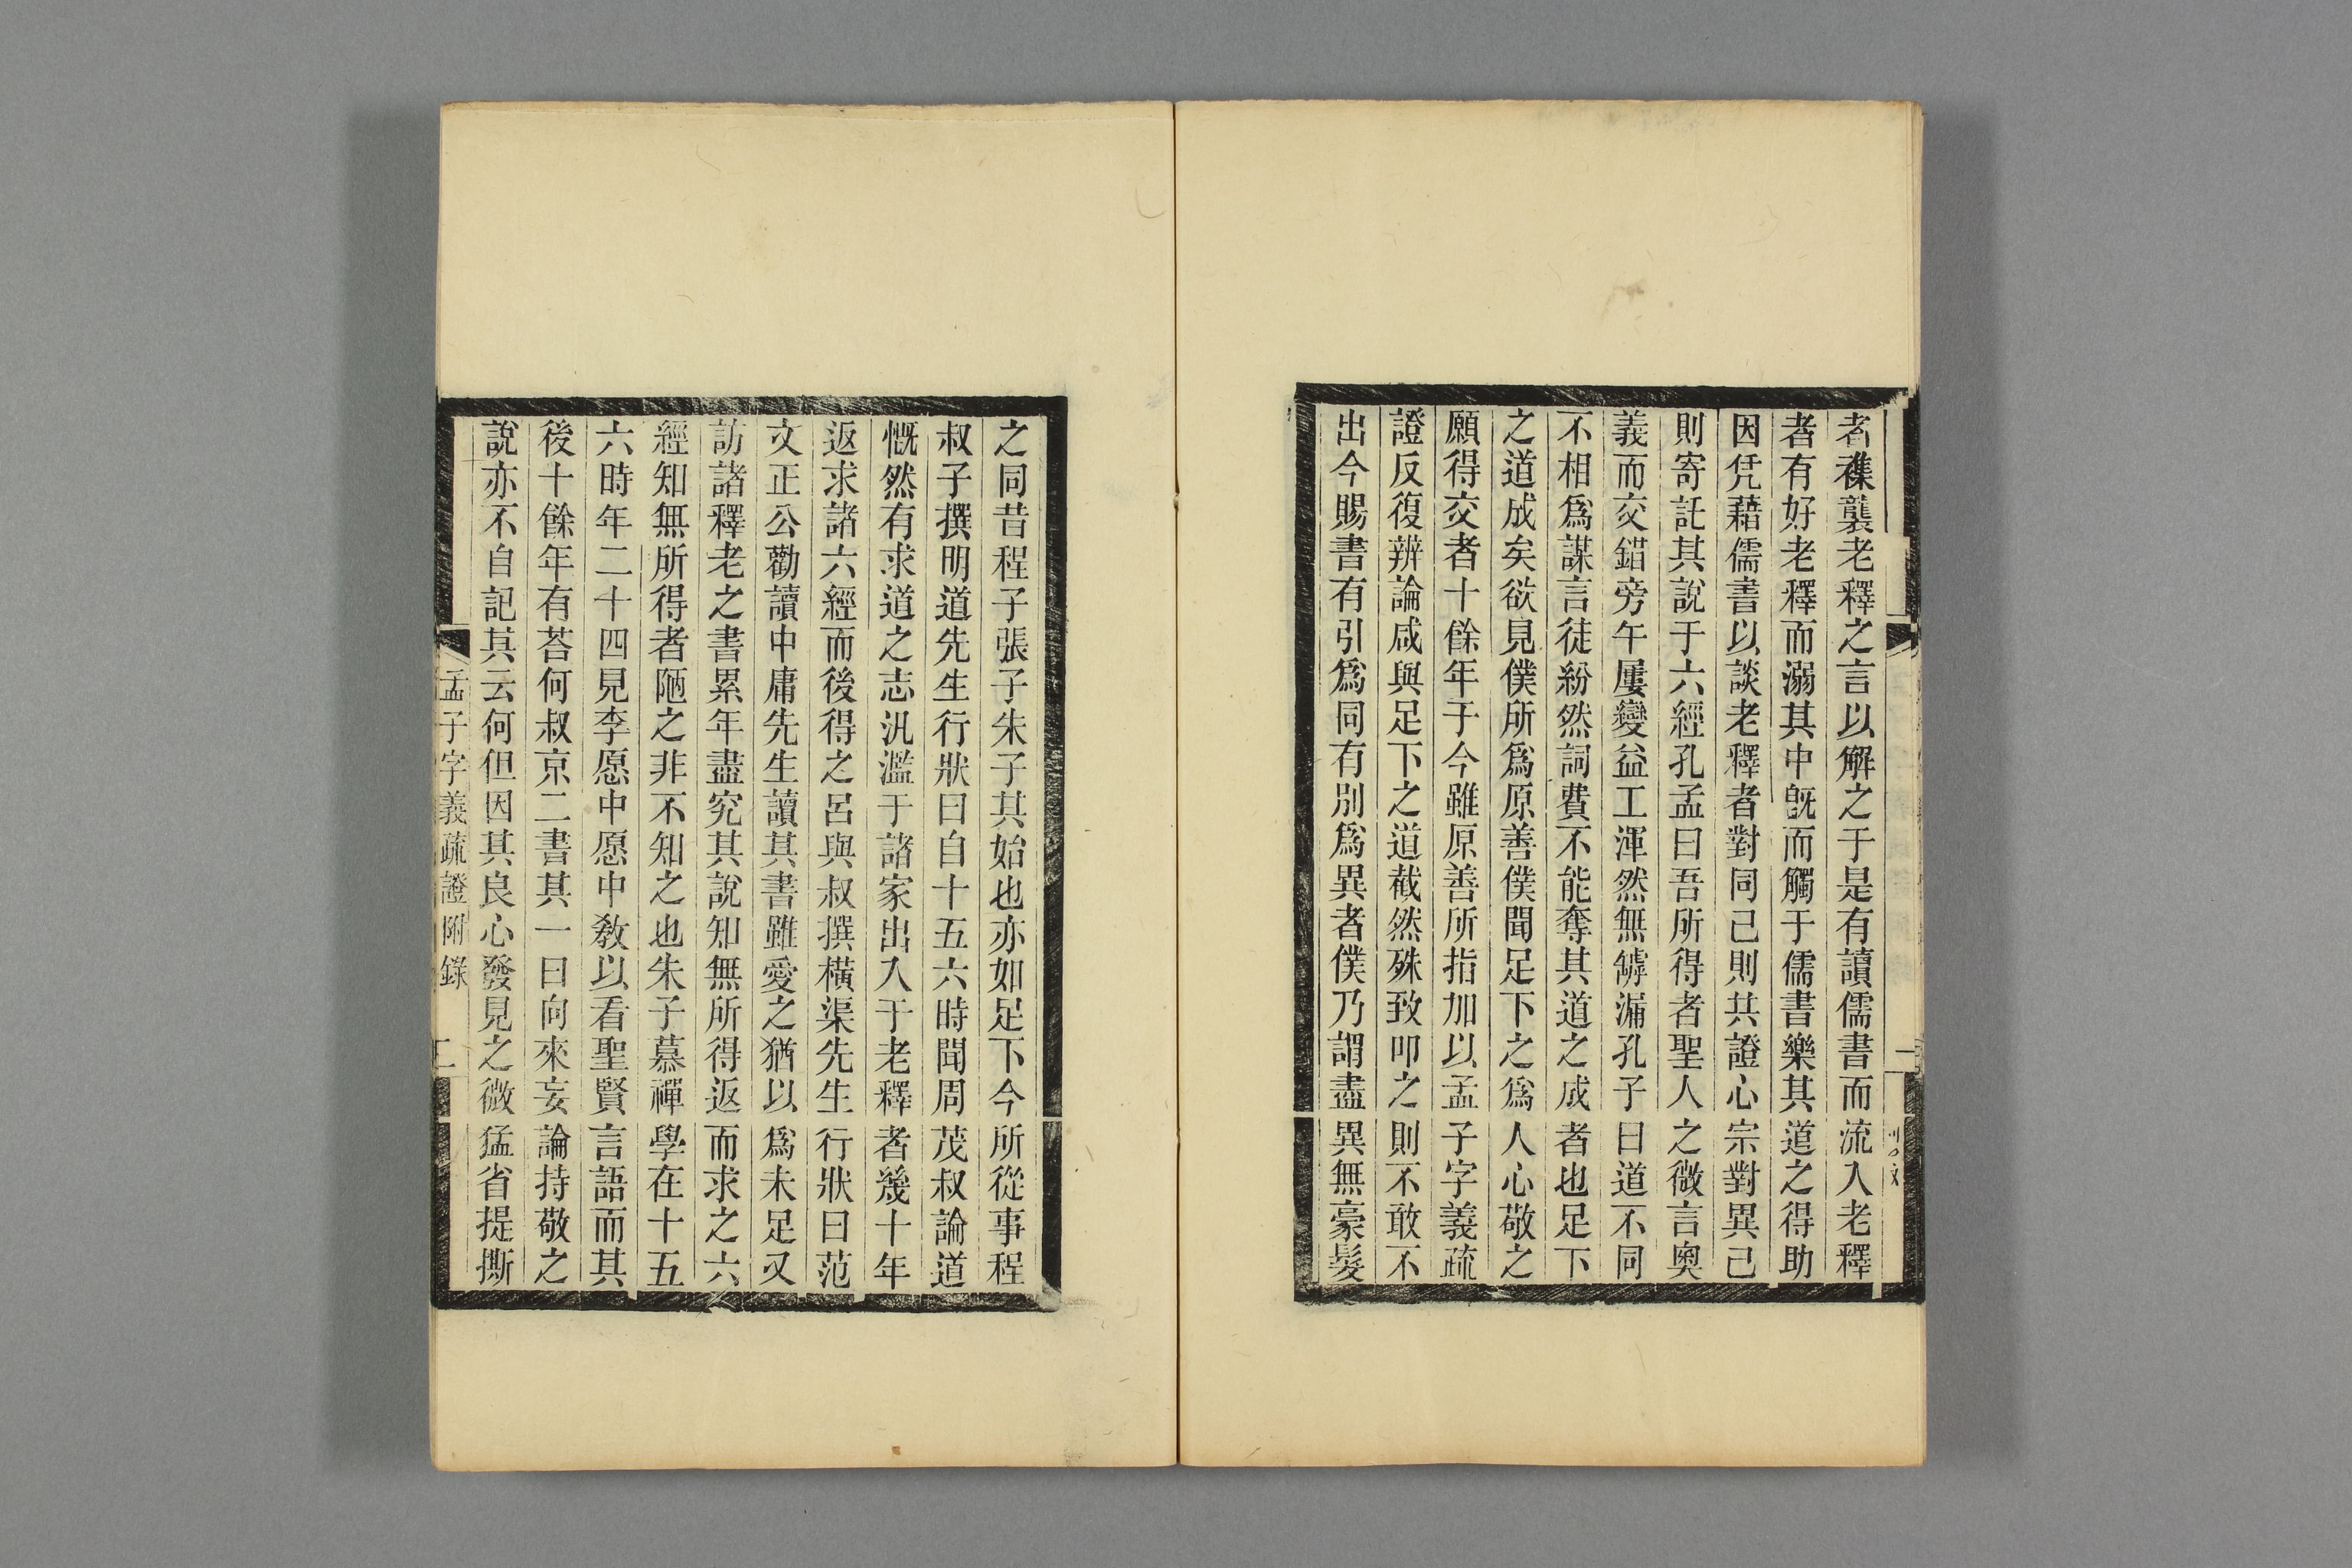 者襍襲老釋之言以解之于是有讀儒書而流入老釋
者有好老釋而溺其中旣而觸于儒書樂其道之得助
因凭藉儒書以談老釋者對同己則共證心宗對異己
則寄託其說于六經孔孟曰吾所得者聖人之微言奧
義而交錯旁午屢變益工渾然無罅漏孔子曰道不同
不相爲謀言徒紛然詞費不能奪其道之成者也足下
之道成矣欲見僕所爲原善僕聞足下之爲人心敬之
願得交者十餘年于今雖原善所指加以孟子字義疏
證反復辨論咸與足下之道截然殊致叩之則不敢不
出今賜書有引爲同有別爲異者僕乃謂盡異無豪髮
之同昔程子張子朱子其始也亦如足下今所從事程
叔子撰明道先生行狀曰自十五六時聞周茂叔論道
慨然有求道之志汎濫于諸家出入于老釋者幾十年
返求諸六經而後得之呂與叔撰橫渠先生行狀曰范
文正公勸讀中庸先生讀其書雖愛之猶以爲未足又
訪諸釋老之書累年盡究其說知無所得返而求之六
經知無所得者陋之非不知之也朱子慕禪學在十五
六時年二十四見李愿中愿中敎以看聖賢言語而其
後十餘年有荅何叔京二書其一曰向來妄論持敬之
說亦不自記其云何但因其良心發見之微猛省提撕
孟子字義疏證附錄 二